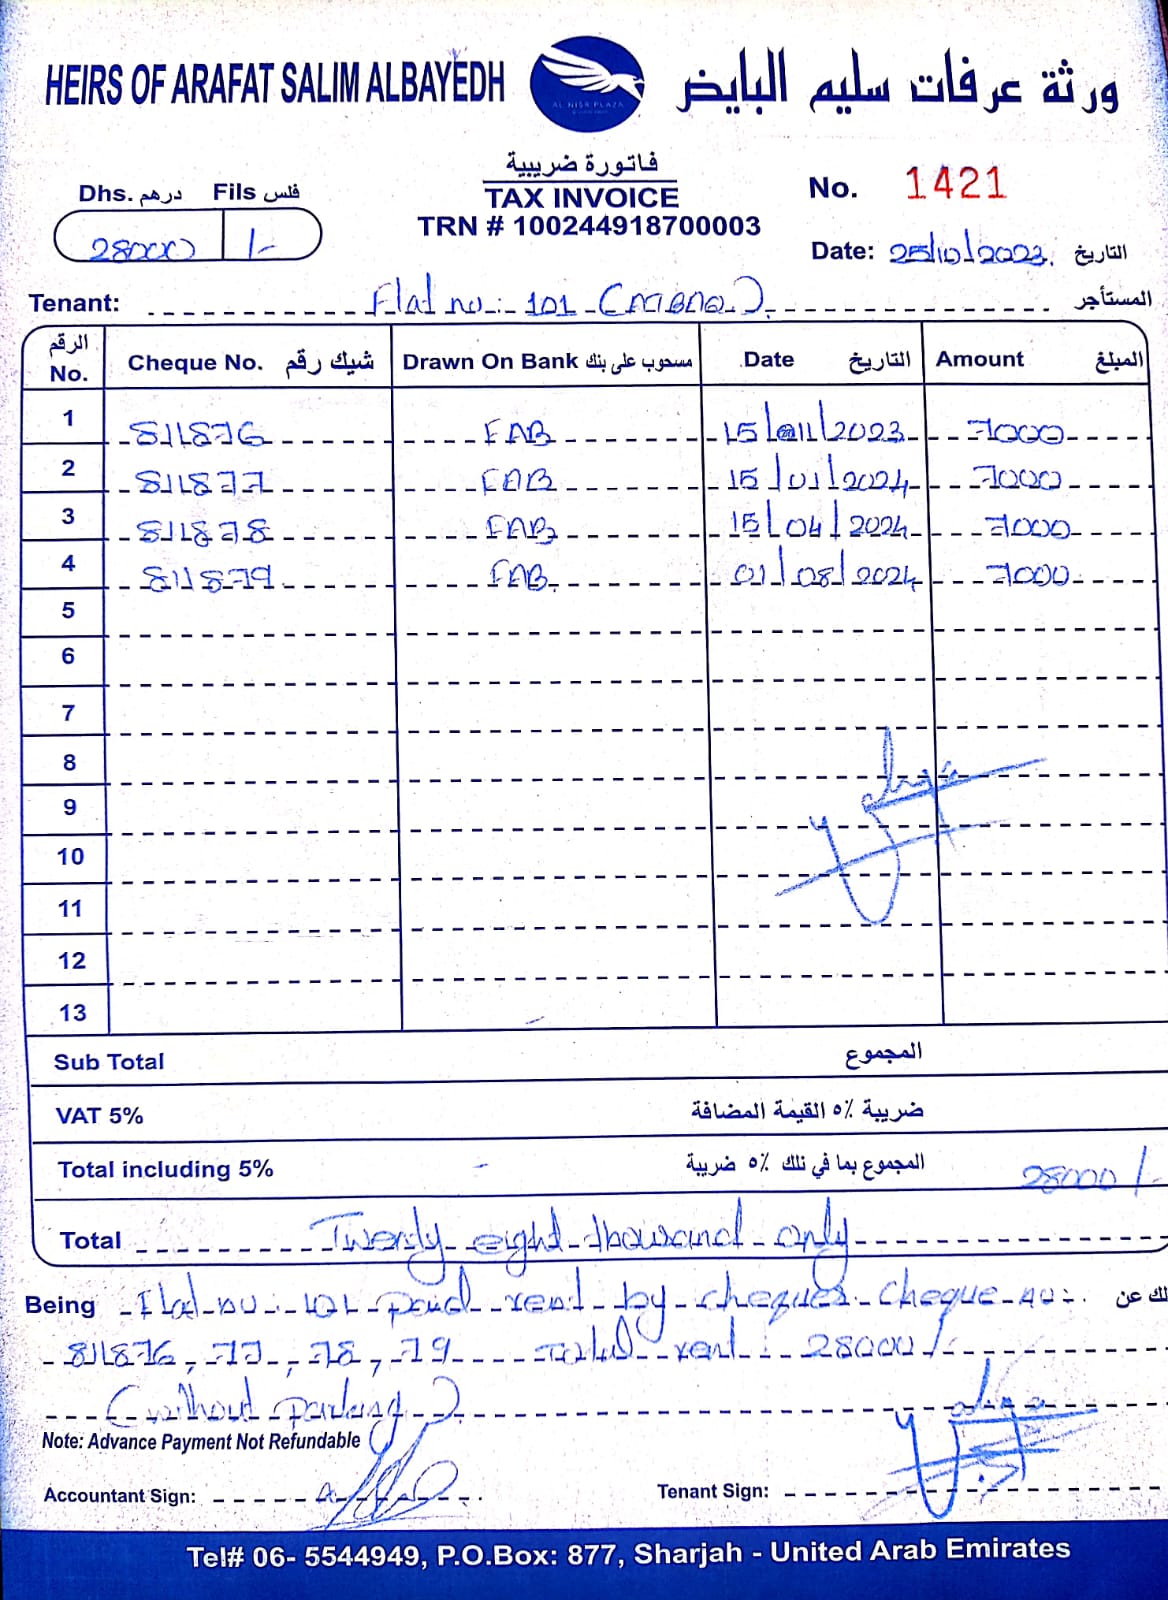 HEIRS OF ARAFAT SALIM ALBAYEDH
AL NISR PLAZA
ورثة عرفات سليم البايض
فاتورة ضريبية
TAX INVOICE
TRN # 100244918700003
Dhs. درهم Fils فلس
28000 /-
No. 1421
Date: 25/10/2023. التاريخ
Tenant: Flat no: 101 المستأجر
الرقم No. Cheque No. شيك رقم Drawn On Bank مسحوب على بنك Date التاريخ Amount المبلغ
1 811876 FAB 15/11/2023 7000
2 811877 FAB 15/01/2024 7000
3 811878 FAB 15/04/2024 7000
4 811879 FAB 01/08/2024 7000
5
6
7
8
9
10
11
12
13
Sub Total المجموع
VAT 5% ضريبة ٥٪ القيمة المضافة
Total including 5% المجموع بما في تلك ٥٪ ضريبة 28000/-
Total Twenty eight thousand only
Being Flat no: 101 paid rent by cheques cheque no: لك عن
811876, 77, 78, 79 Total rent: 28000/-
(without parking)
Note: Advance Payment Not Refundable
Accountant Sign:
Tenant Sign:
Tel# 06- 5544949, P.O.Box: 877, Sharjah - United Arab Emirates